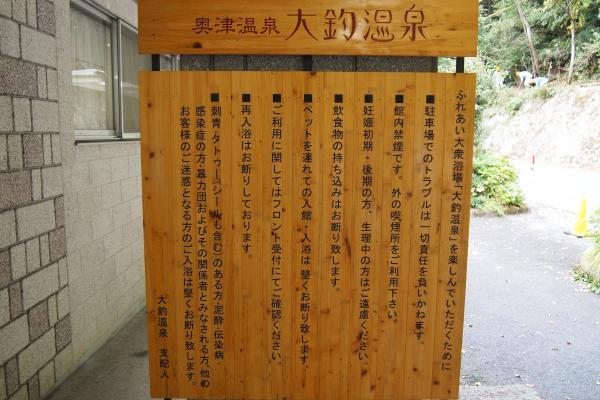 奥津温泉 大釣温泉
ふれあい大衆浴場「大釣温泉」を楽しんでいただくために
■駐車場でのトラブルは一切責任を負いかねます。
■館内禁煙です。外の喫煙所をご利用下さい。
■妊娠初期・後期の方、生理中の方はご遠慮ください。
■飲食物の持ち込みはお断り致します。
■ペットを連れての入館・入浴は堅くお断り致します。
■ご利用に関してはフロント受付にてご確認ください。
■再入浴はお断りしております。
■刺青・タトゥー(シールも含む)のある方・泥酔・伝染病・
感染症の方・暴力団およびその関係者とみなされる方、他の
お客様のご迷惑となる方のご入浴は堅くお断り致します。
大釣温泉 支配人